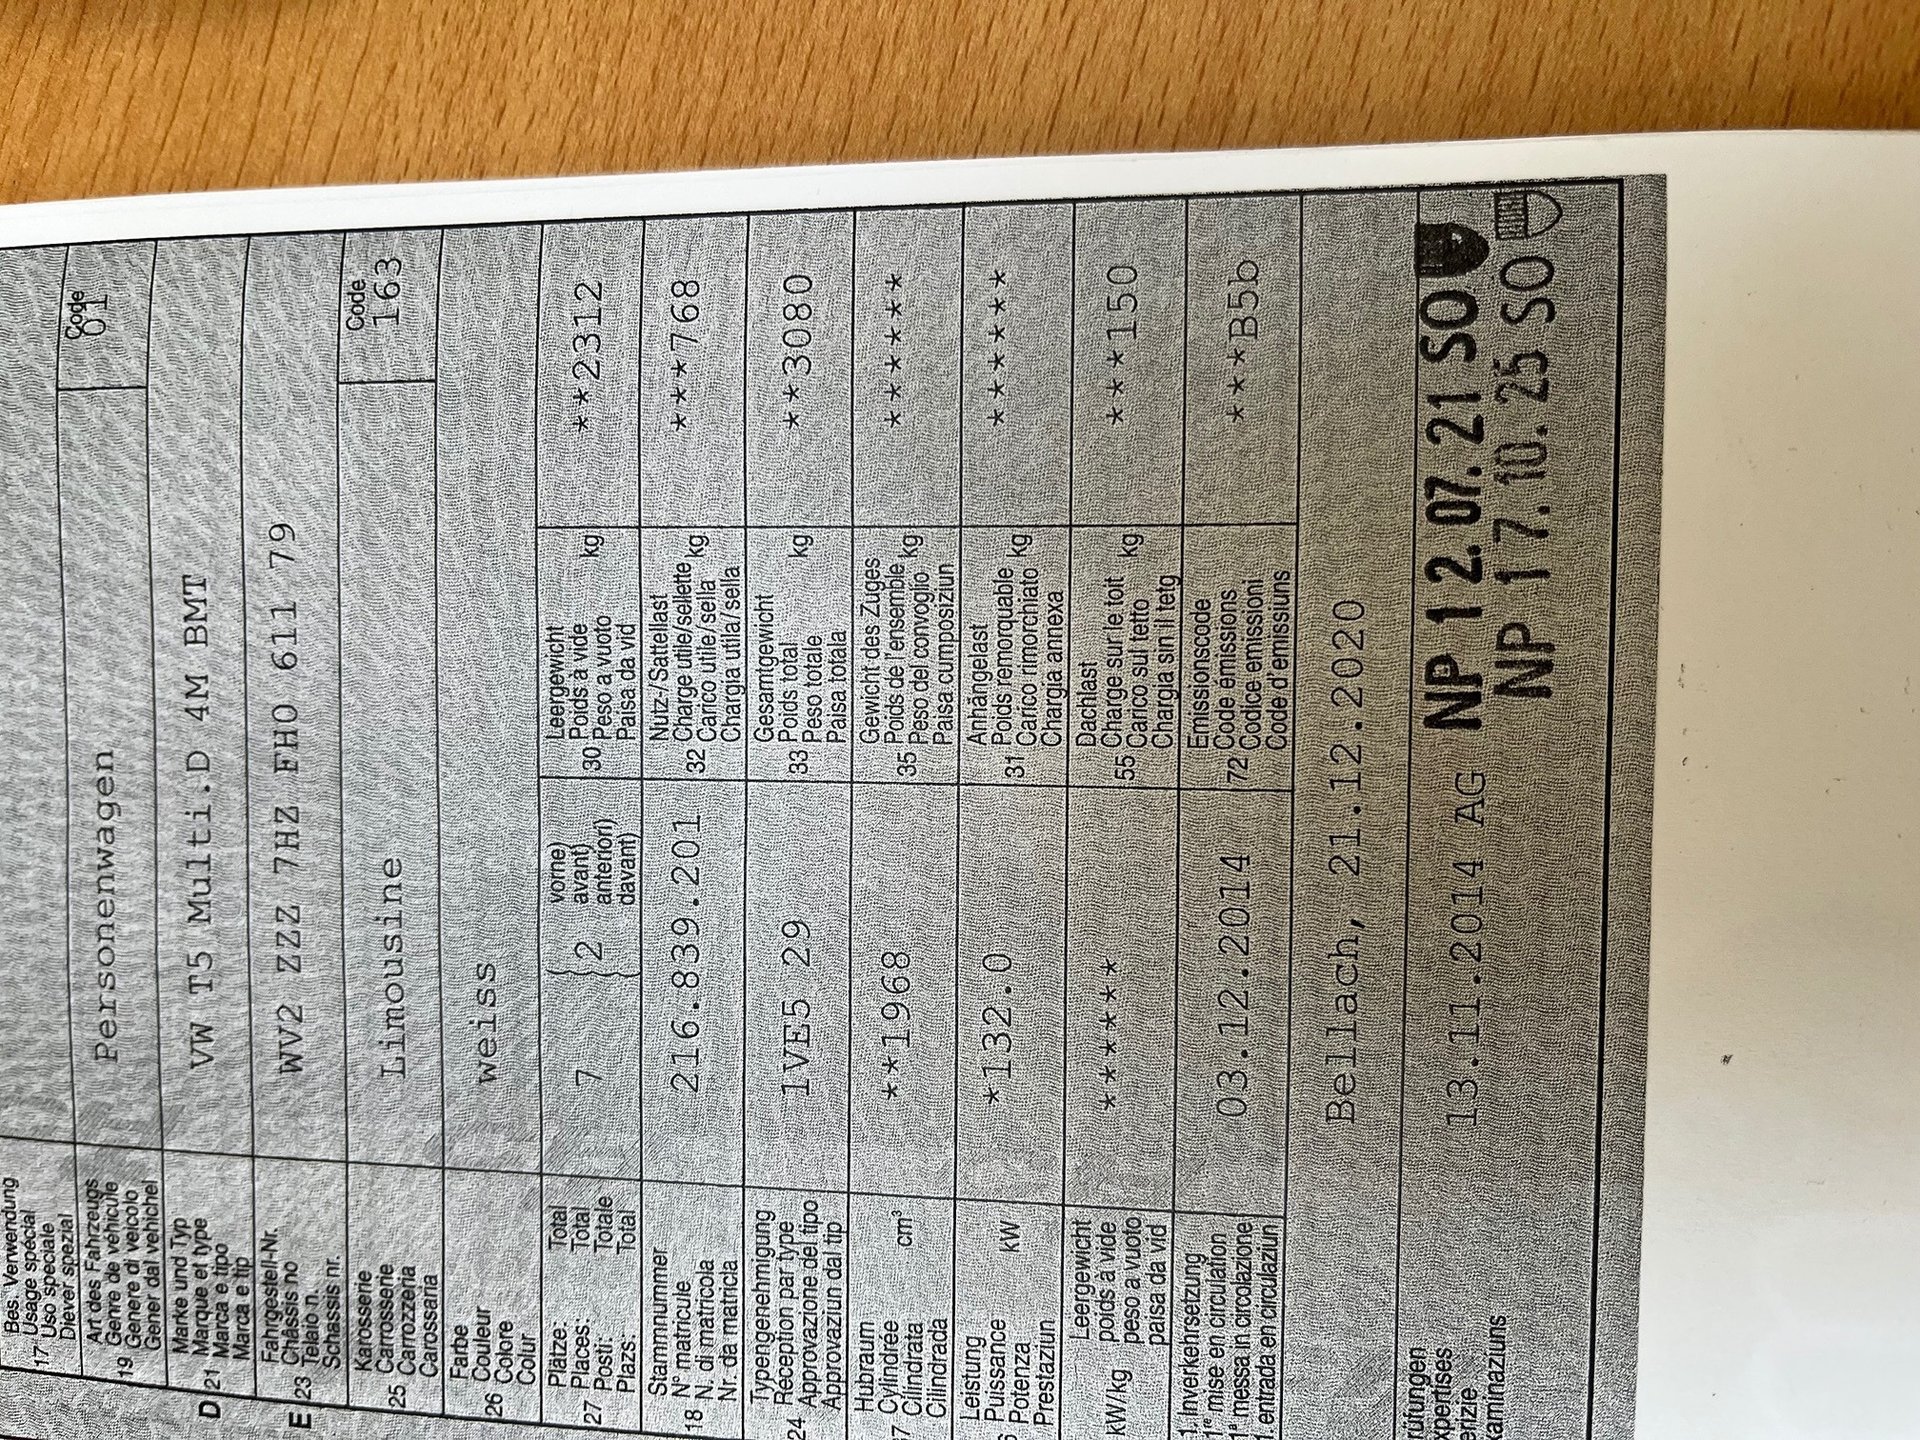 Bes. Verwendung
17 Usage spécial
Uso speciale
Diever spezial
Art des Fahrzeugs
19 Genre de véhicule
Genere di veicolo
Gener dal vehichel
Personenwagen
Code
01
Marke und Typ
D 21 Marque et type
Marca e tipo
Marca e tip
VW T5 Multi.D 4M BMT
Fahrgestell-Nr.
E 23 Châssis no
Telaio n.
Schassis nr.
WV2 ZZZ 7HZ FH0 611 79
Karosserie
25 Carrosserie
Carrozzeria
Carossaria
Limousine
Code
163
Farbe
26 Couleur
Colore
Colur
weiss
Plätze: Total
27 Places: Total
Posti: Totale
Plazs: Total
7
2
vorne)
avant)
anteriori)
davant)
Leergewicht
30 Poids à vide kg
Peso a vuoto
Paisa da vid
**2312
Stammnummer
18 N° matricule
N. di matricola
Nr. da matricla
216.839.201
Nutz-/Sattellast
32 Charge utile/sellette kg
Carico utile/ sella
Chargia utila/ sella
***768
Typengenehmigung
24 Réception par type
Approvazione del tipo
Approvaziun dal tip
1VE5 29
Gesamtgewicht
33 Poids total kg
Peso totale
Paisa totala
**3080
Hubraum
37 Cylindrée cm³
Cilindrata
Cilindrada
**1968
Gewicht des Zuges
35 Poids de l'ensemble kg
Peso del convoglio
Paisa cumposiziun
******
Leistung
Puissance kW
Potenza
Prestaziun
*132.0
Anhängelast
31 Poids remorquable kg
Carico rimorchiato
Chargia annexa
******
Leergewicht
kW/kg poids à vide
peso a vuoto
paisa da vid
******
Dachlast
55 Charge sur le toit kg
Carico sul tetto
Chargia sin il tetg
***150
1. Inverkehrsetzung
1re mise en circulation
1a messa in circolazione
1. entrada en circulaziun
03.12.2014
Emissionscode
72 Code émissions
Codice emissioni
Code d'emissiuns
***B5b
Bellach, 21.12.2020
rüfungen
xpertises
erizie
xaminaziuns
13.11.2014 AG
NP 12.07.21 SO
NP 17.10.25 SO